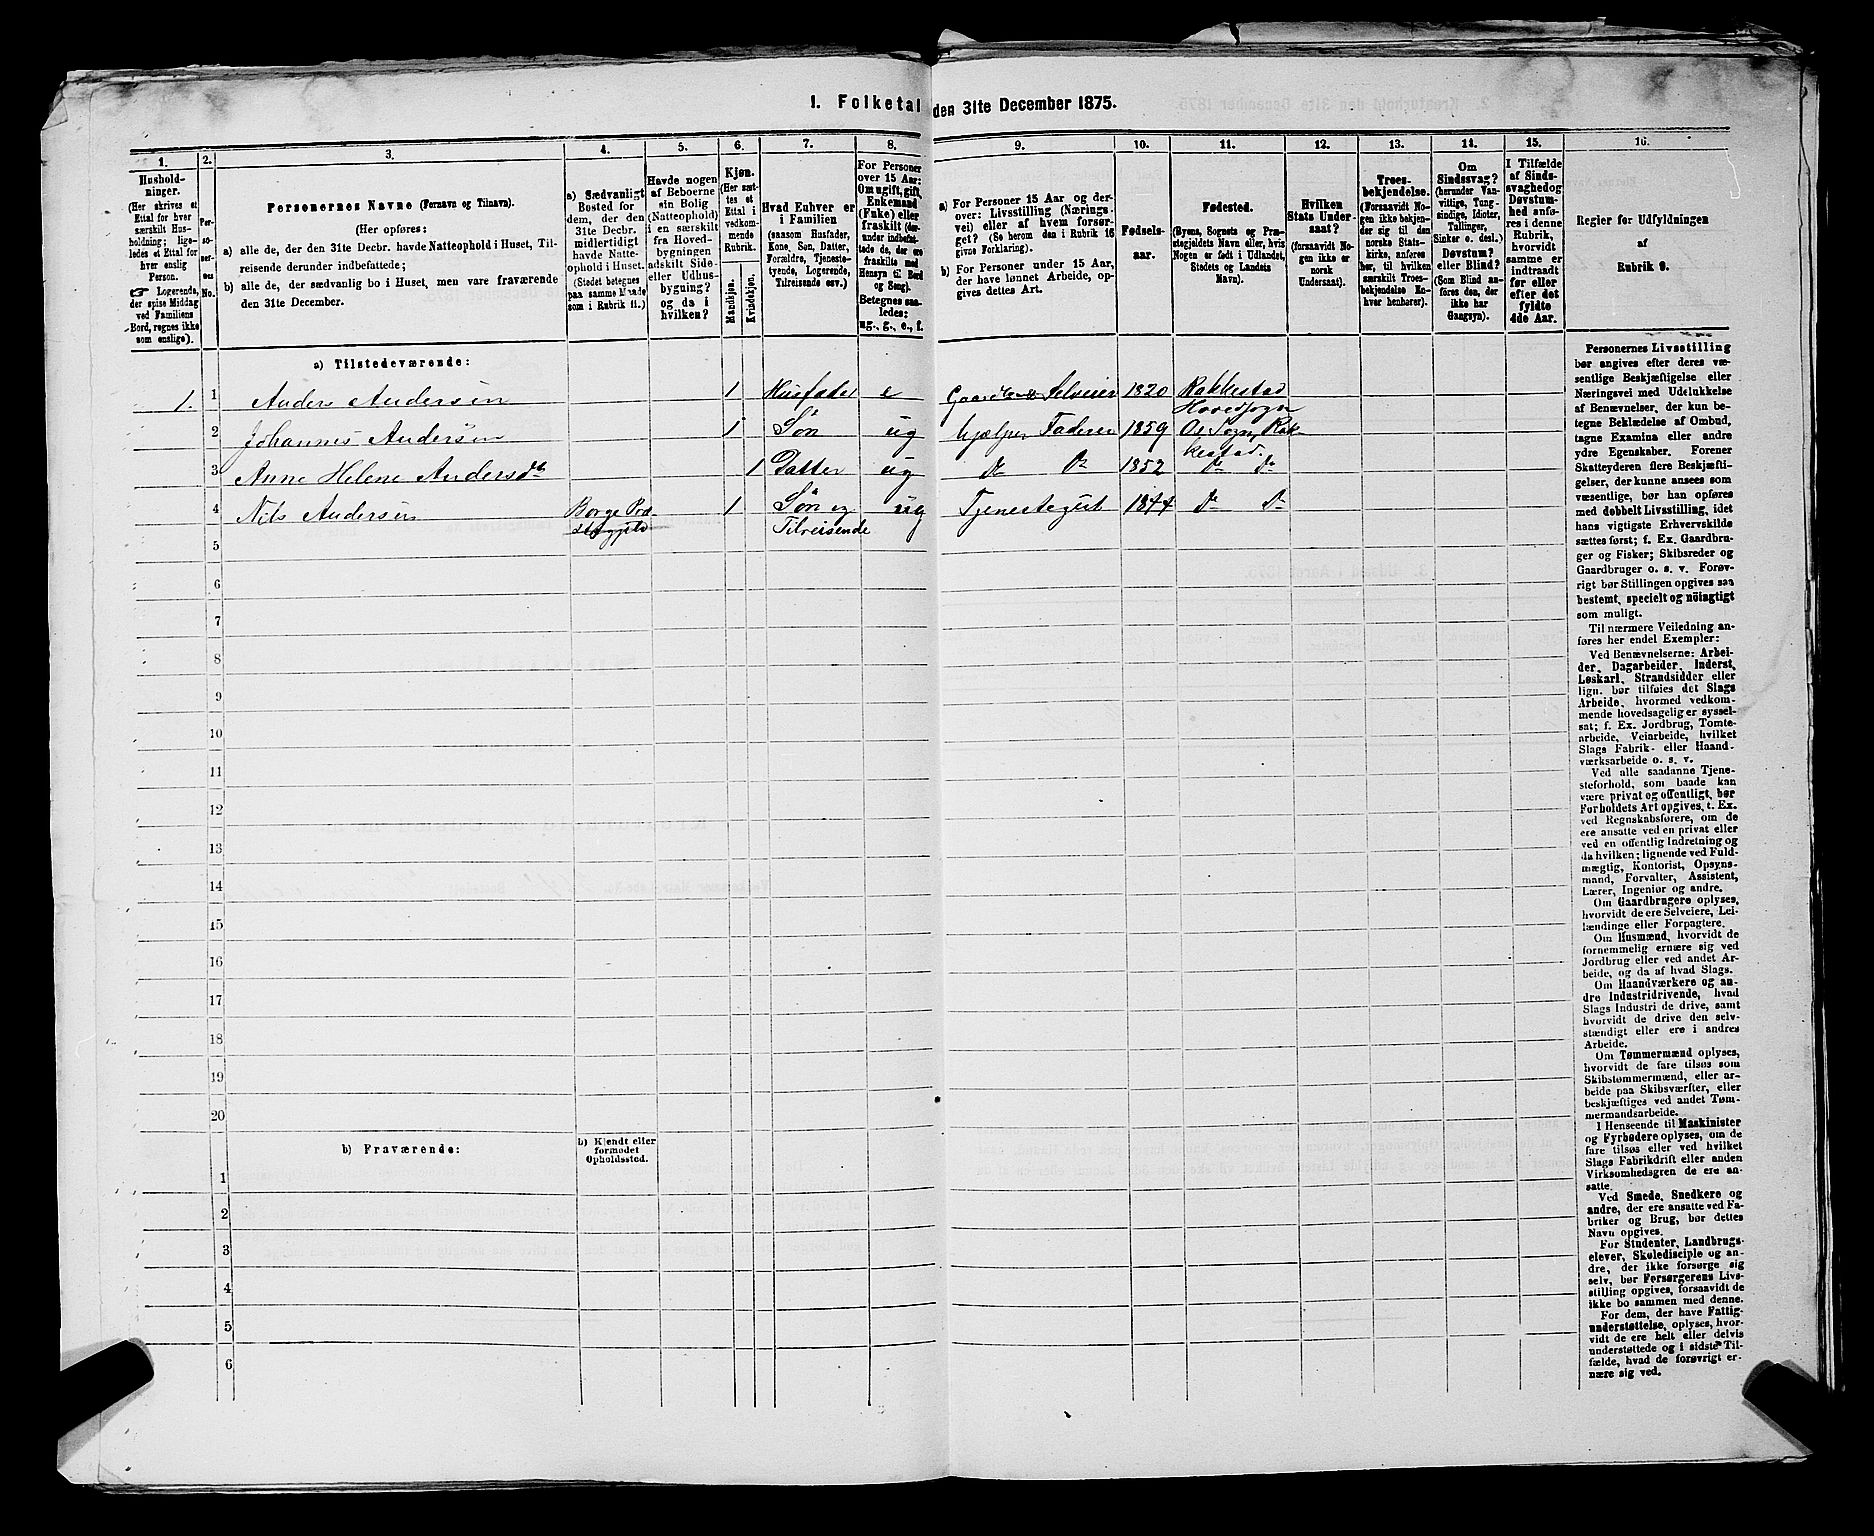 1. Folketal den 31te December 1875.
1.
Husholdninger.
(Her skrives et
Ettal for hver
særskilt Husholdning;
ligeledes et Ettal for
hver enslig
Person.
☞ Logerende,
der spise Middag
ved Familiens
Bord, regnes ikke
som enslige).
2.
Personernes No.
3.
Personernes Navne (Fornavn og Tilnavn).
(Her opføres:
a) alle de, der den 31te Decbr. havde Natteophold i Huset, Tilreisende derunder indbefattede;
b) alle de, der sædvanlig bo i Huset, men vare fraværende
den 31te December.
4.
a) Sædvanligt
Bosted for
dem, der den
31te Decbr.
midlertidigt
havde Natteophold i Huset.
(Stedet betegnes
paa samme Maade
som i Rubrik 11.)
5.
Havde nogen
af Beboerne
sin Bolig
(Natteophold)
i en særskilt
fra Hovedbygningen
adskilt Side-
eller Udhusbygning?
og da i
hvilken?
6.
Kjøn.
(Her sættes et
Ettal i
vedkommende
Rubrik.
Mandkjøn.
Kvindekjøn.
7.
Hvad Enhver er
i Familien
(saasom Husfader,
Kone, Søn, Datter,
Forældre, Tjenestetyende, Logerende,
Tilreisende osv.)
8.
For Personer
over 15 Aar:
Om ugift, gift,
Enkemand
(Enke) eller
fraskilt (derunder indbefattede de, der ere
fraskilte med
Hensyn til Bord
og Seng).
Betegnes saaledes:
ug., g., e., f.
9.
a) For Personer 15 Aar og derover: Livsstilling (Næringsvei) eller af hvem forsørget? (Se herom den i Rubrik 16
givne Forklaring).
b) For Personer under 15 Aar,
der have lønnet Arbeide, opgives dettes Art.
10.
Fødselsaar.
11.
Fødested.
(Byens, Sognets og Præstegjeldets Navn eller, hvis
Nogen er født i Udlandet,
Stedets og Landets
Navn).
12.
Hvilken
Stats Undersaat?
(forsaavidt Nogen ikke er
norsk
Undersaat).
13.
Troesbekjendelse.
(Forsaavidt Nogen ikke bekjender sig til den
norske Statskirke, anføres
her, til hvilken
særskilt Troesbekjendelse Enhver henhører).
14.
Om
Sindssvag?
(herunder Vanvittige, Tungsindige, Idioter,
Tullinger,
Sinker o. desl.)
Døvstum?
eller Blind?
(Som Blind anføres den, der
ikke har
Gangsyn).
15.
I Tilfælde
af Sindssvaghed og
Døvstumhed anføres i denne
Rubrik,
hvorvidt
samme er
indtraadt
før eller
efter det
fyldte
4de Aar.
16.
Regler for Udfyldningen
af
Rubrik 9.
a) Tilstedeværende:
1. 1 Anders Andersen 1 Husfader e Selveier 1820 Rakkestad
Hovedsogn
2 Johannes Andersen 1 Søn ug hjælper Faderen 1859 Os Sogn, Rakkestad.
3 Anne Helene Andersdtr 1 Datter ug Do Do 1852 Do Do
4 Nils Andersen Borge Præ
stegjeld 1 Søn og
Tilreisende ug Tjenestegut 1844 Do Do
5
6
7
8
9
10
11
12
13
14
15
16
17
18
19
20
b) Fraværende:
b) Kjendt eller
formodet
Opholdssted.
1
2
3
4
5
6
Personernes Livsstilling
bør angives efter deres væsentlige Beskjæftigelse eller
Næringsvei med Udelukkelse
af Benævnelser, der kun betegne Beklædelse af Ombud,
tagne Examina eller andre
ydre Egenskaber. Forener
Skatteyderen flere Beskjæftigelser, der kunne ansees som
væsentlige, bør han opføres
med dobbelt Livsstilling, idet
hans vigtigste Erhvervskilde
sættes først; f. Ex. Gaardbruger og Fisker; Skibsreder og
Gaardbruger o. s. v. Forøvrigt bør Stillingen opgives saa
bestemt, specielt og nöiagtigt
som muligt.
Til nærmere Veiledning anføres her endel Exempler:
Ved Benævnelserne: Arbeider, Dagarbeider, Inderst,
Løskarl, Strandsidder eller
lign. bør tilføies det Slags
Arbeide, hvormed vedkommende hovedsagelig er sysselsat; f. Ex. Jordbrug, Tomtearbeide, Veiarbeide, hvilket
Slags Fabrik- eller Haandværksarbeide o. s. v.
Ved alle saadanne Tjenesteforhold, som baade kan
være privat og offentligt, bør
Forholdets Art opgives, t. Ex.
ved Regnskabsførere, om de
ere ansatte ved en privat eller
ved en offentlig Indretning og
da hvilken; lignende ved Fuldmægtig, Kontorist, Opsynsmand, Forvalter, Assistent,
Lærer, Ingeniør og andre.
Om Gaardbrugere oplyses,
hvorvidt de ere Selveiere, Leilændinge eller Forpagtere.
Om Husmænd, hvorvidt de
fornemmelig ernære sig ved
Jordbrug eller ved andet Arbeide, og da af hvad Slags.
Om Haandværkere og andre Industridrivende, hvad
Slags Industri de drive, samt
hvorvidt de drive den selvstændigt eller ere i andres
Arbeide.
Om Tømmermænd oplyses,
hvorvidt de fare tilsøs som
Skibstømmermænd, eller arbeide paa Skibsværfter, eller
beskjæftiges ved andet Tømmermandsarbeide.
I Henseende til Maskinister
og Fyrbødere oplyses, om de
fare tilsøs eller ved hvilket
Slags Fabrikdrift eller anden
Virksomhedsgren de ere ansatte.
Ved Smede, Snedkere og
andre, der ere ansatte ved Fabriker og Brug, bør dettes
Navn opgives.
For Studenter, Landbrugselever, Skoledisciple og andre, der ikke forsørge sig
selv, bør Forsørgerens Livsstilling opgives, forsaavidt de
ikke bo sammen med denne.
For dem, der have Fattigunderstøttelse, oplyses, hvorvidt de ere helt eller delvis
understøttede og i sidste Tilfælde, hvad de forøvrigt ernære sig ved.